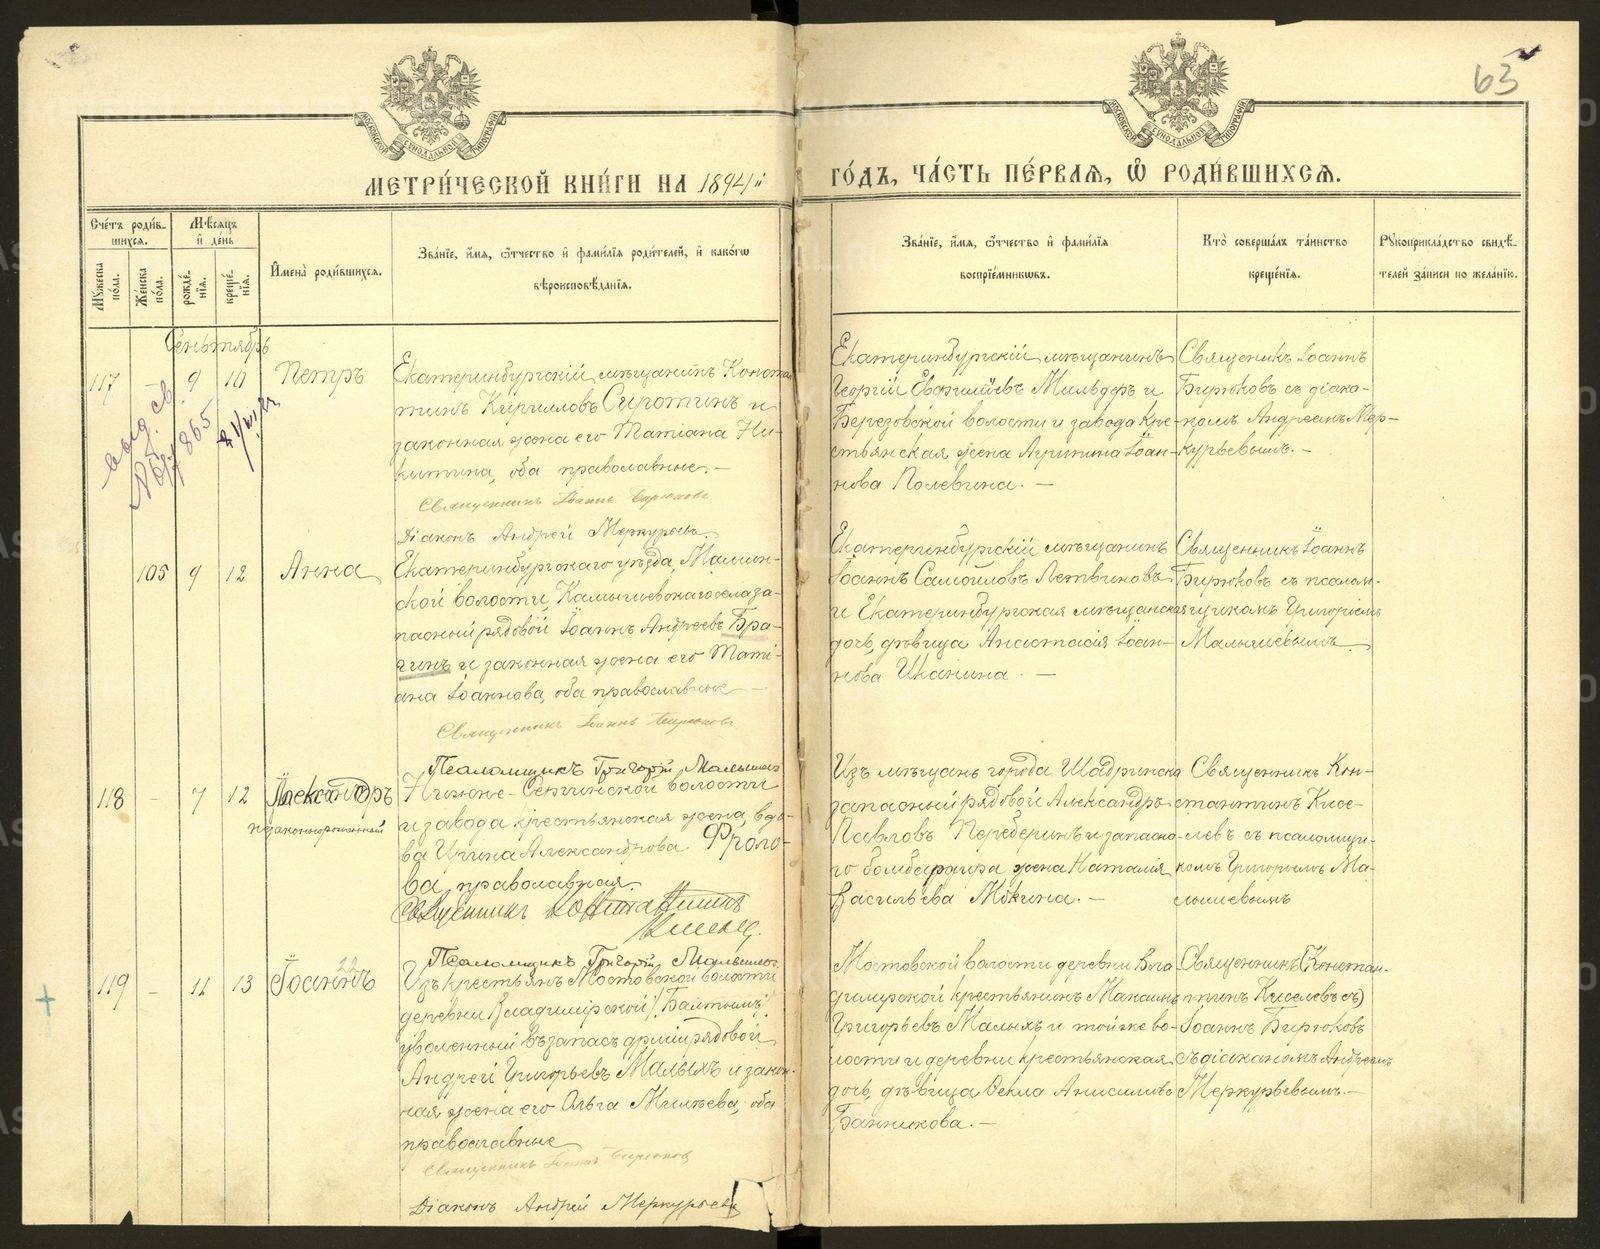 63
МЕТРИЧЕСКОЙ КНИГИ НА 1894й
ГОДЪ, ЧАСТЬ ПЕРВАЯ, Ѡ РОДИВШИХСЯ.
Счетъ родив-
шихся.
Мужеска пола.
Женска пола.
Мѣсяцъ
и день
рожде-
нія.
креще-
нія.
Имена родившихся.
Званіе, имя, ѿчество и фамилія родителей, и какогѡ
вѣроисповѣданія.
Званіе, имя, ѿчество и фамилія
воспріемникѡвъ.
Кто совершалъ таинство
крещенія.
Рукоприкладство свидѣ-
телей записи по желанію.
Сентябрь
117 9 10 Петръ
выд. св.
№ 865
Екатеринбургскій мѣщанинъ Констан
тинъ Кирилловъ Сиротинъ и
законная жена его Татіана Ни-
китина, оба православные. —
Священникъ Іоаннъ Бирюковъ
Діаконъ Андрей Меркурьевъ
Екатеринбургскій мѣщанинъ
Георгій Евфиміевъ Мильдеръ и
Березовской волости и завода кре-
стьянская жена Агрипина Іоан-
нова Полевина. —
Священникъ Іоаннъ
Бирюковъ съ діако-
номъ Андреемъ Мер-
курьевымъ. —
105 9 12 Анна
Екатеринбургскаго уѣзда, Мамин-
ской волости, Камышевскаго села за-
пасный рядовой Іоаннъ Андреевъ Бра-
гинъ и законная жена его Тати-
ана Іоаннова, оба православные —
Священникъ Іоаннъ Бирюковъ
Псаломщикъ Григорій Малышевъ
Екатеринбургскій мѣщанинъ
Іоаннъ Самойловъ Летвиновъ
и Екатеринбургская мѣщанская
дочь, дѣвица Анастасія Іоан-
нова Иканина. —
Священникъ Іоаннъ
Бирюковъ съ псалом-
щикомъ Григоріемъ
Малышевымъ
118 — 7 12 Александръ
незаконнорожденный
Нижне-Сергинской волости
и завода крестьянская жена, вдо-
ва Александрова Фроло-
ва, православная.
Священникъ Константинъ
Киселевъ.
Псаломщикъ Григорій Малышевъ
Изъ мѣщанъ города Шадринска
запасный рядовой Александръ
Павловъ Переберинъ и запасно-
го бомбардира жена Наталія
Васильева Мокина. —
Священникъ Кон-
стантинъ Кисе-
левъ съ псаломщи-
комъ Григоріемъ Ма-
лышевымъ
119 — 11 13 Іоаннъ
22
Изъ крестьянъ Мостовской волости
деревни Владимірской (Балтымъ)
уволенный въ запасъ арміи рядовой
Андрей Григорьевъ Малыхъ и закон-
ная жена его Ольга Михѣева, оба
православные
Священникъ Іоаннъ Бирюковъ
Діаконъ Андрей Меркурьевъ
Мостовской волости деревни Вла
димірской крестьянинъ Максимъ
Григорьевъ Малыхъ и той же во-
лости и деревни крестьянская
дочь, дѣвица Ѳекла Анисимова
Банникова. —
Священникъ (Констан-
тинъ Киселевъ съ)
Іоаннъ Бирюковъ
съ діакономъ Андреемъ
Меркурьевымъ —